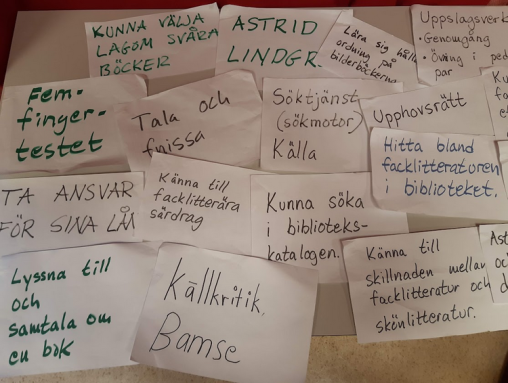 KUNNA VÄLJA
LAGOM SVÅRA
BÖCKER
ASTRID
LINDGR.
Lära sig hålla
ordning på
bilderböckerna
Uppslagsverk
• Genomgång
• Övning i
par
Fem-
finger-
testet
Tala och
finissa
Söktjänst
(sökmotor)
Källa
Upphovsrätt
Hitta bland
facklitteraturen
i biblioteket.
TA ANSVAR
FÖR SINA LÅN
Känna till
facklitterära
särdrag
Kunna söka
i biblioteks-
katalogen.
Känna till
skillnaden mellan
facklitteratur och
skönlitteratur.
Lyssna till
och
samtala om
en bok
Källkritik.
Bamse